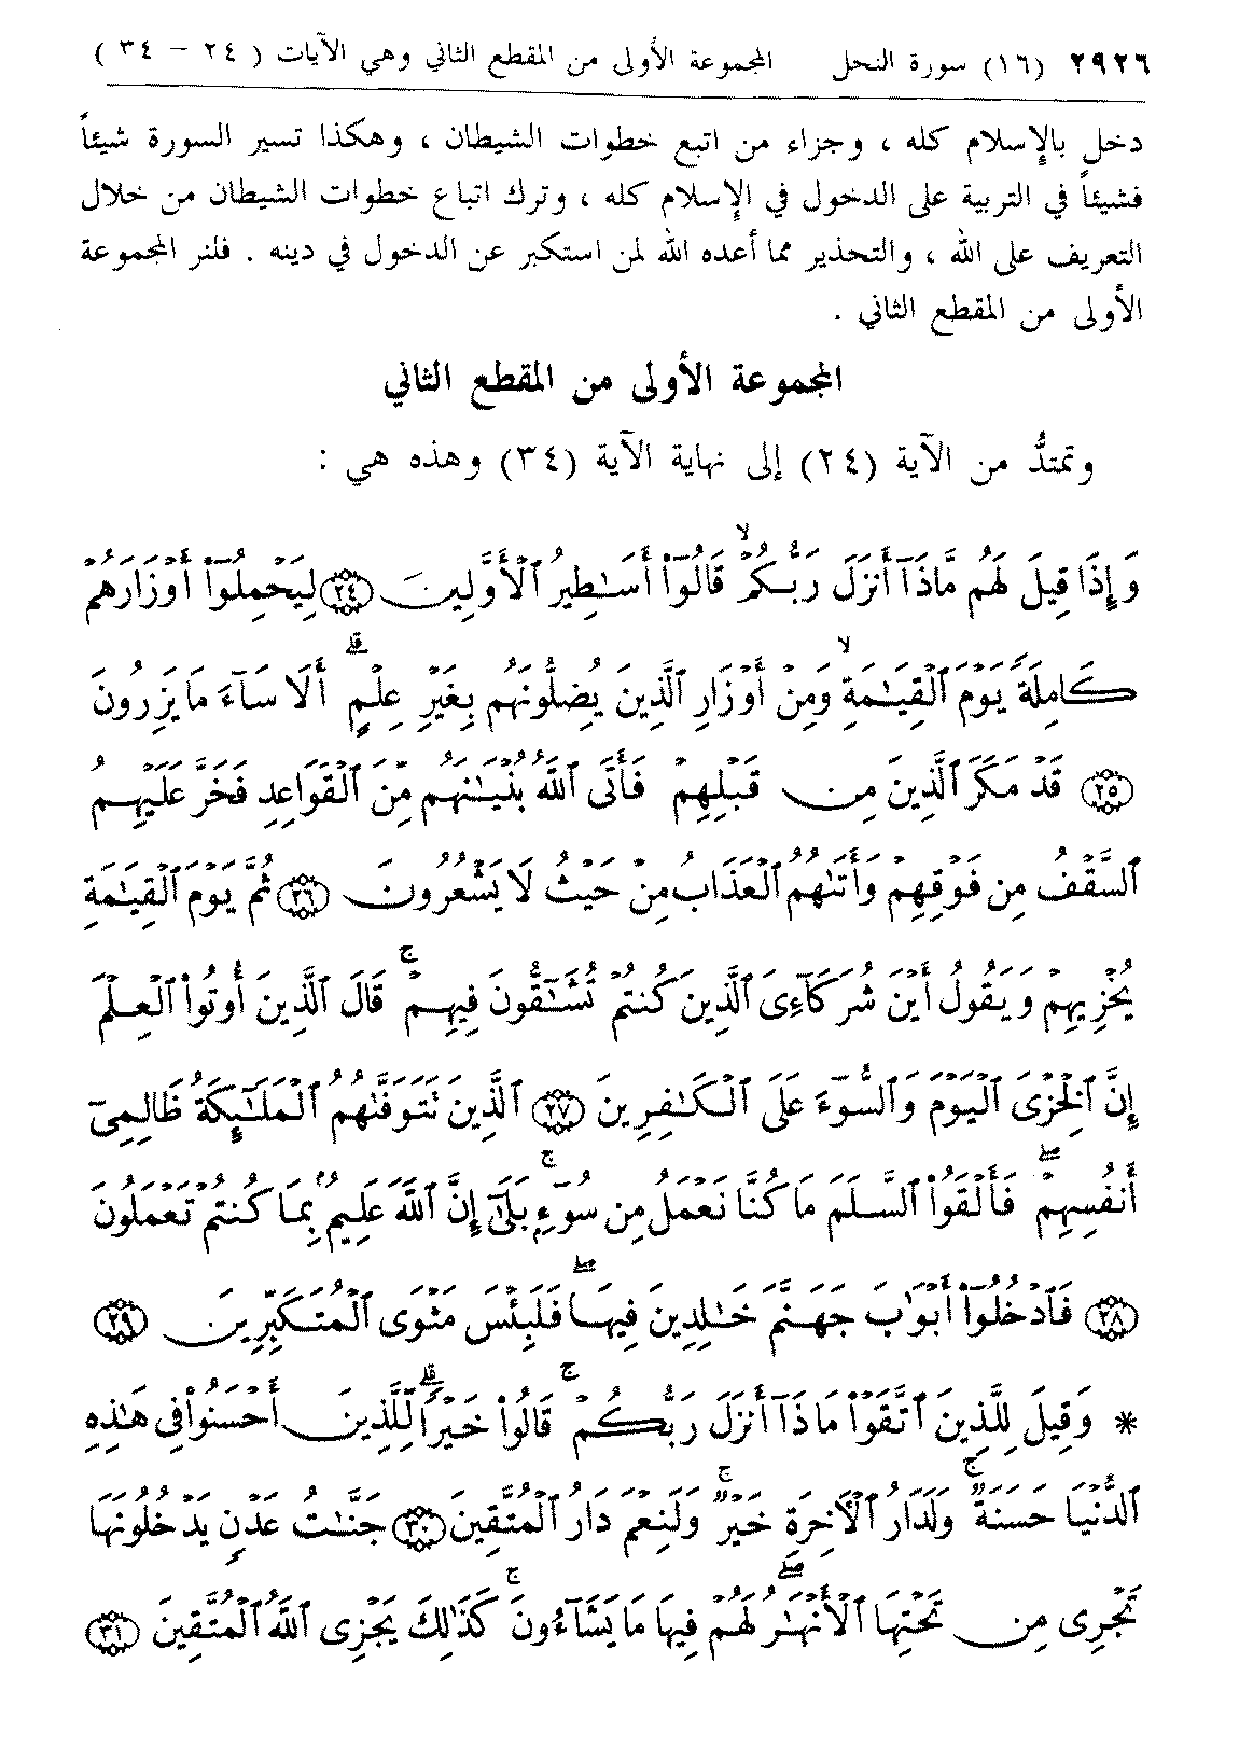 ٢٩٢٦ (١٦) سورة النحل المجموعة الأولى من المقطع الثاني وهي الآيات ( ٢٤ - ٣٤ )
دخل بالإسلام كله ، وجزاء من اتبع خطوات الشيطان ، وهكذا تسير السورة شيئاً
فشيئاً في التربية على الدخول في الإسلام كله ، وترك اتباع خطوات الشيطان من خلال
التعريف على الله ، والتحذير مما أعده الله لمن استكبر عن الدخول في دينه . فلنر المجموعة
الأولى من المقطع الثاني .
المجموعة الأولى من المقطع الثاني
وتمتدُّ من الآية (٢٤) إلى نهاية الآية (٣٤) وهذه هي :
وَإِذَا قِيلَ لَهُم مَّاذَآ أَنزَلَ رَبُّكُمْ ۙ قَالُوٓاْ أَسَٰطِيرُ ٱلْأَوَّلِينَ ﴿٢٤﴾ لِيَحْمِلُوٓاْ أَوْزَارَهُمْ
كَامِلَةً يَوْمَ ٱلْقِيَٰمَةِ ۙ وَمِنْ أَوْزَارِ ٱلَّذِينَ يُضِلُّونَهُم بِغَيْرِ عِلْمٍ ۗ أَلَا سَآءَ مَا يَزِرُونَ
﴿٢٥﴾ قَدْ مَكَرَ ٱلَّذِينَ مِن قَبْلِهِمْ فَأَتَى ٱللَّهُ بُنْيَٰنَهُم مِّنَ ٱلْقَوَاعِدِ فَخَرَّ عَلَيْهِمُ
ٱلسَّقْفُ مِن فَوْقِهِمْ وَأَتَىٰهُمُ ٱلْعَذَابُ مِنْ حَيْثُ لَا يَشْعُرُونَ ﴿٢٦﴾ ثُمَّ يَوْمَ ٱلْقِيَٰمَةِ
يُخْزِيهِمْ وَيَقُولُ أَيْنَ شُرَكَآءِىَ ٱلَّذِينَ كُنتُمْ تُشَٰٓقُّونَ فِيهِمْ ۚ قَالَ ٱلَّذِينَ أُوتُواْ ٱلْعِلْمَ
إِنَّ ٱلْخِزْىَ ٱلْيَوْمَ وَٱلسُّوٓءَ عَلَى ٱلْكَٰفِرِينَ ﴿٢٧﴾ ٱلَّذِينَ تَتَوَفَّىٰهُمُ ٱلْمَلَٰٓئِكَةُ ظَالِمِىٓ
أَنفُسِهِمْ ۖ فَأَلْقَوُاْ ٱلسَّلَمَ مَا كُنَّا نَعْمَلُ مِن سُوٓءٍۭ ۚ بَلَىٰٓ إِنَّ ٱللَّهَ عَلِيمٌۢ بِمَا كُنتُمْ تَعْمَلُونَ
﴿٢٨﴾ فَٱدْخُلُوٓاْ أَبْوَٰبَ جَهَنَّمَ خَٰلِدِينَ فِيهَا ۖ فَلَبِئْسَ مَثْوَى ٱلْمُتَكَبِّرِينَ ﴿٢٩﴾
* وَقِيلَ لِلَّذِينَ ٱتَّقَوْاْ مَاذَآ أَنزَلَ رَبُّكُمْ ۚ قَالُواْ خَيْرًا ۗ لِّلَّذِينَ أَحْسَنُواْ فِى هَٰذِهِ
ٱلدُّنْيَا حَسَنَةٌ ۚ وَلَدَارُ ٱلْأٓخِرَةِ خَيْرٌ ۚ وَلَنِعْمَ دَارُ ٱلْمُتَّقِينَ ﴿٣٠﴾ جَنَّٰتُ عَدْنٍ يَدْخُلُونَهَا
تَجْرِى مِن تَحْتِهَا ٱلْأَنْهَٰرُ ۖ لَهُمْ فِيهَا مَا يَشَآءُونَ ۚ كَذَٰلِكَ يَجْزِى ٱللَّهُ ٱلْمُتَّقِينَ ﴿٣١﴾